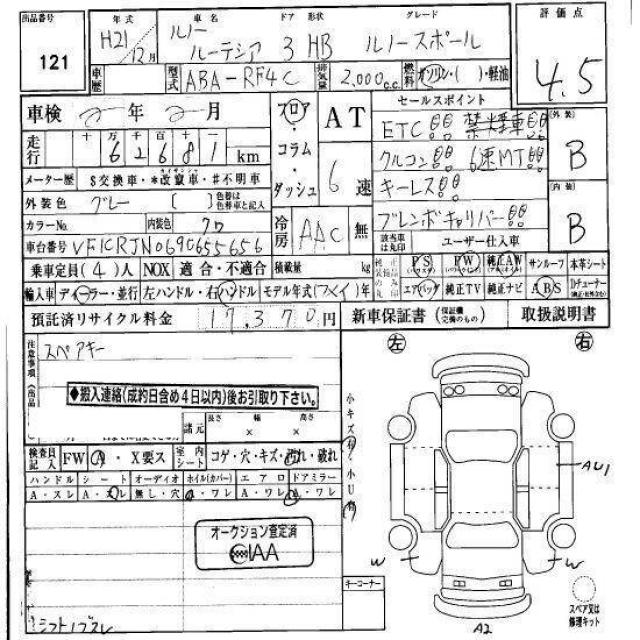 出品番号 121
年式 H21/12月
車名 ルノー ルーテシア
ドア 形状 3 HB
グレード ルノースポール
評価点 4.5
車歴
型式 ABA-RF4C
排気量 2,000c.c.
燃料 ガソリン・( )・軽油
車検 年 月
走行 十万千百十一 62681 km
メーター歴 $交換車・*改竄車・#不明車
外装色 グレー ( ) 色替は色替車と記入
カラーNo. 内装色 クロ
車台番号 VF1CRJN0690655656
フロア・コラム・ダッシュ
AT 6速
冷房 AAC 無
セールスポイント
ETC!! 禁煙車!!
クルコン!! 6速MT!!
キーレス!!
ブレンボキャリパー!!
該当車は丸印 ユーザー仕入車
外装 B
内装 B
乗車定員(4)人 NOX 適合・不適合 積載量 kg
PS PW 純正AW サンルーフ 本革シート
輸入車 ディーラー・並行 左ハンドル・右ハンドル モデル年式( )年
エアバッグ 純正TV 純正ナビ ABS
預託済リサイクル料金 17,370円
新車保証書 取扱説明書
注意事項
スペアキー
◆搬入連絡(成約日含め4日以内)後お引取り下さい。
諸元 長さ 幅 高さ
× ×
検査員記入 FW A・X要ス 室内シート コゲ・穴・キズ・汚れ・破れ
ハンドル シート オーディオ ホイル(カバー) エアロ ドアミラー
A・スレ A・スレ 無し・穴 A・ワレ A・ワレ A・ワレ
オークション査定済
IAA
シフトノブスレ
小キズ有
小U有
キーコーナー
左 右
AU1
W W
A2
スペア又は修理キット